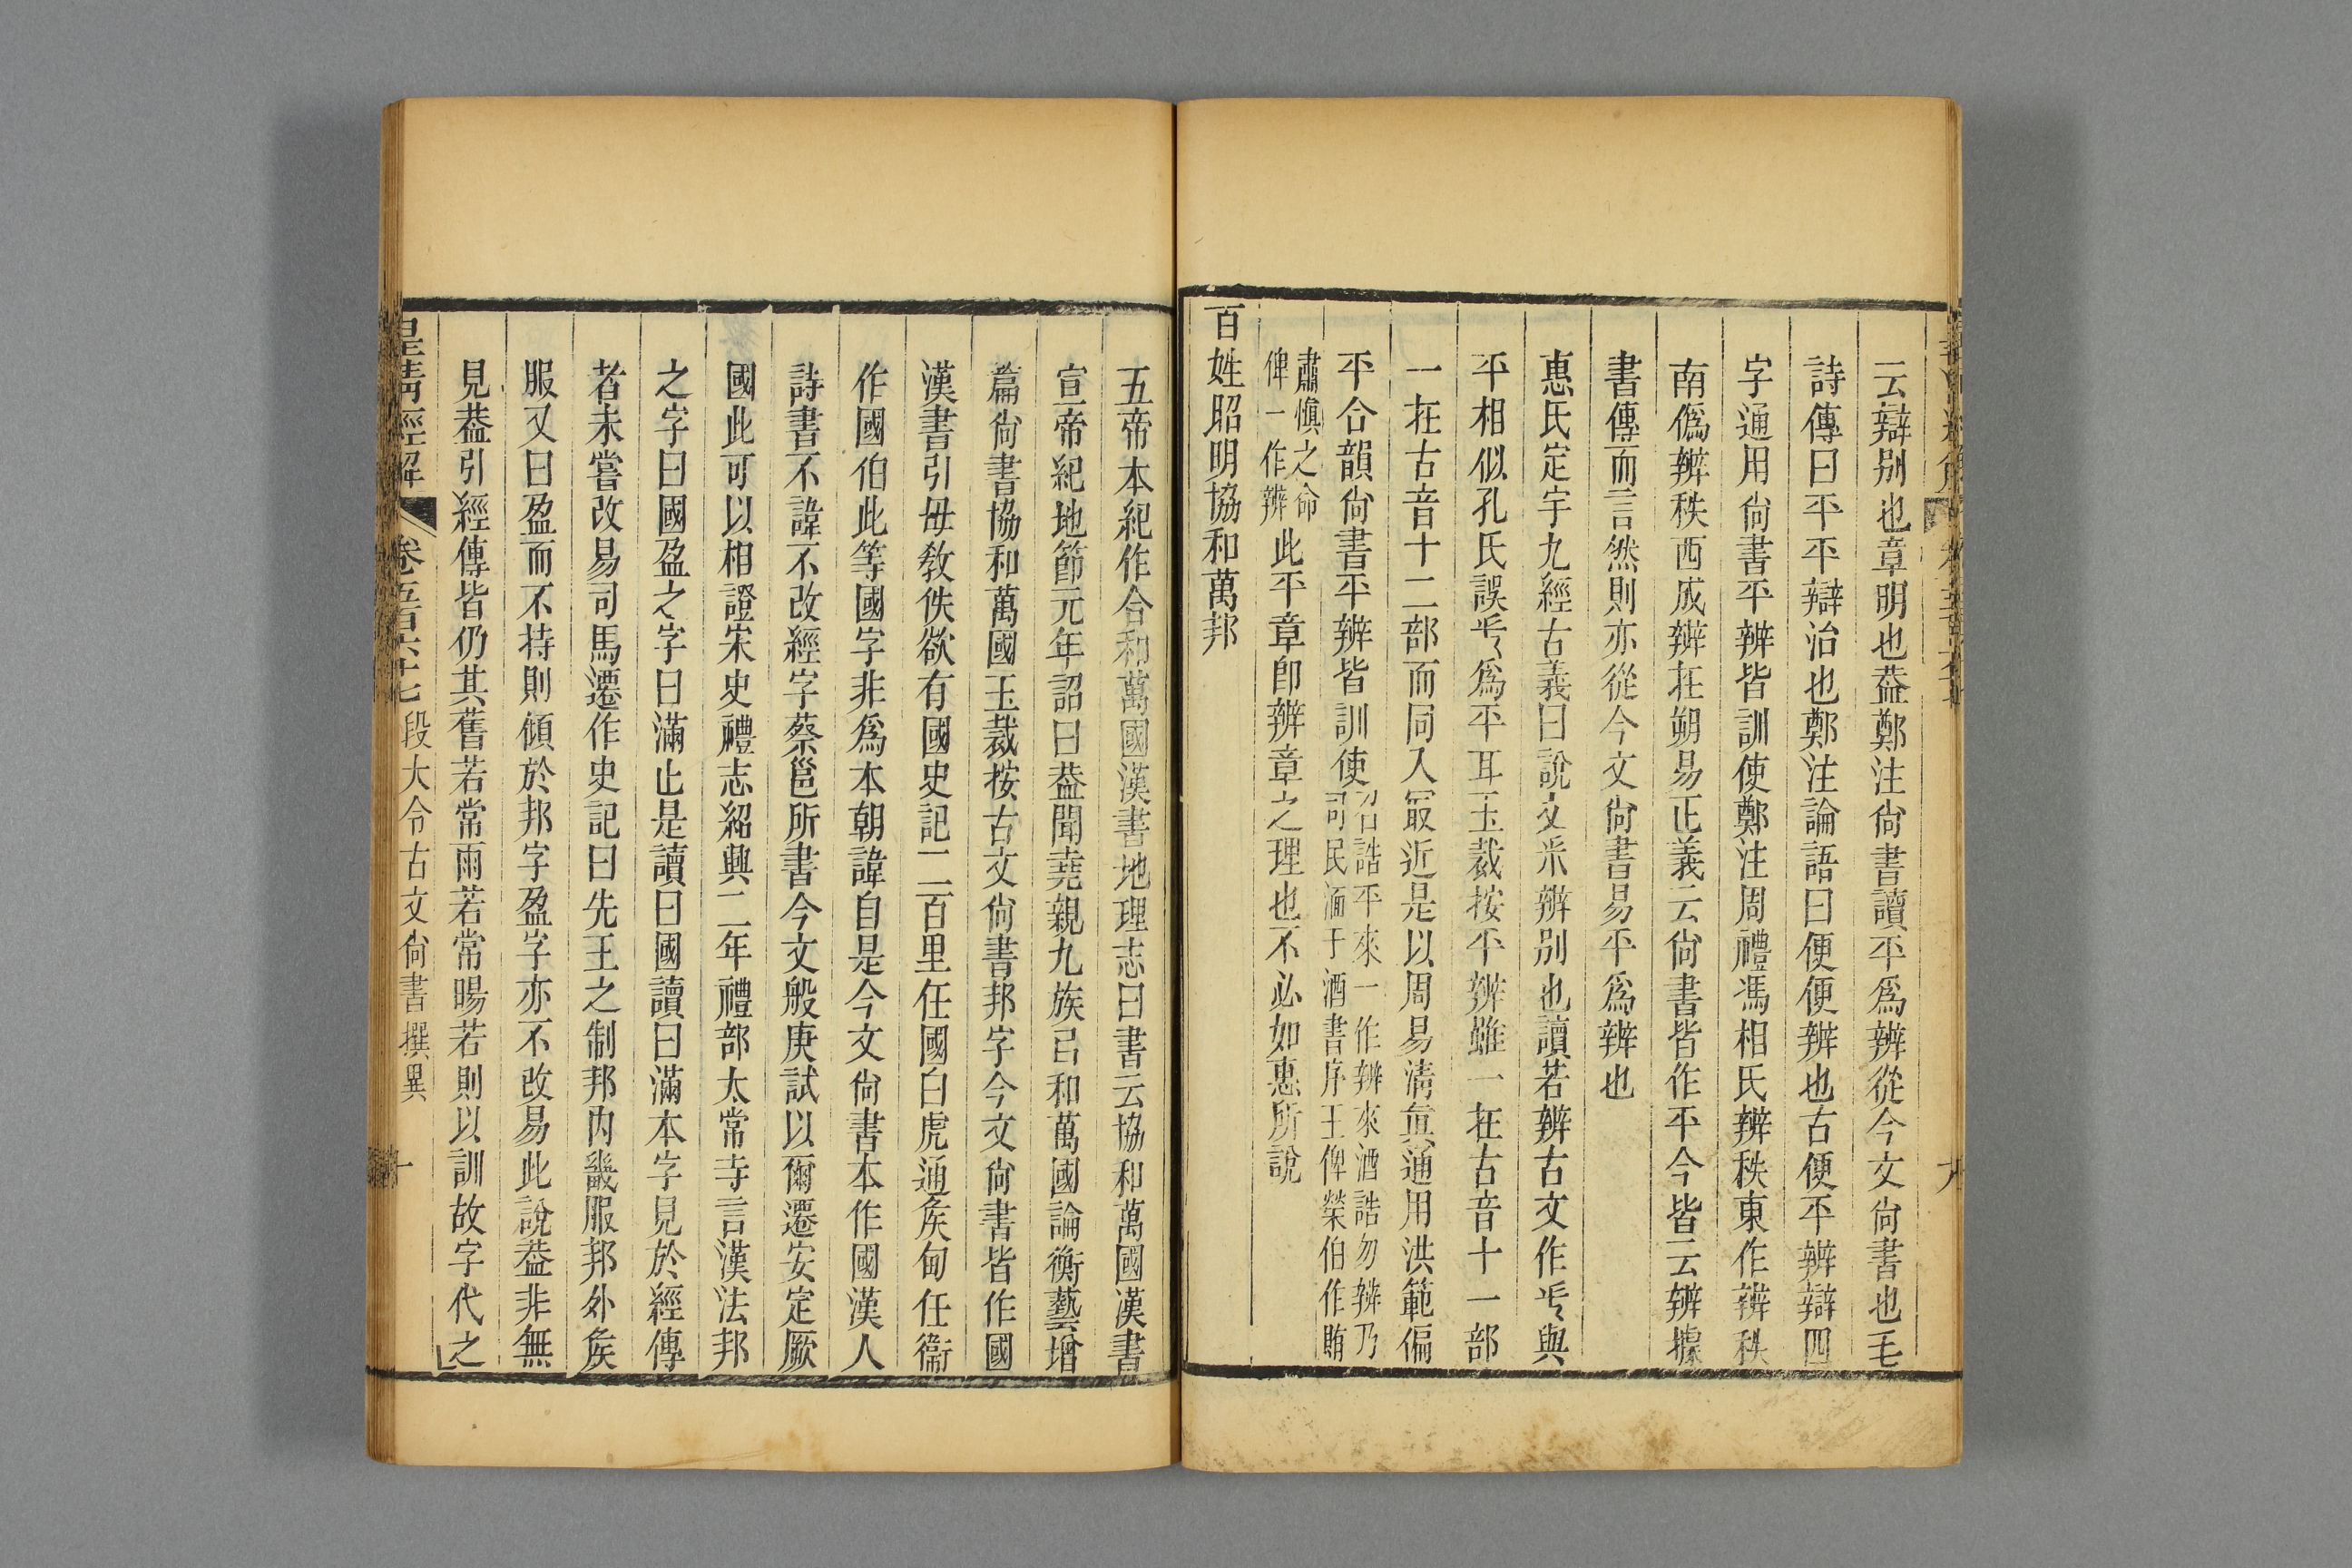 云辯别也章明也葢鄭注尙書讀平爲辨從今文尙書也毛
詩傳曰平平辯治也鄭注論語曰便便辨也古便平辨辯四
字通用尙書平辨皆訓使鄭注周禮馮相氏辨秩東作辨秩
南僞辨秩西成辨在朔易正義云尙書皆作平今皆云辨據
書傳而言然則亦從今文尙書易平爲辨也
惠氏定宇九經古義曰說文釆辨別也讀若辨古文作𠂒與
平相似孔氏誤𠂒爲平耳玉裁按平辨雖一在古音十一部
一在古音十二部而同入冣近是以周易淸眞通用洪範偏
平合韻尙書平辨皆訓使召誥平來一作辨來酒誥勿辨乃
司民湎于酒書序王俾榮伯作賄
肅愼之命
俾一作辨此平章卽辨章之理也不必如惠所說
百姓昭明協和萬邦
五帝本紀作合和萬國漢書地理志曰書云協和萬國漢書
宣帝紀地節元年詔曰葢聞堯親九族㠯和萬國論衡藝增
篇尙書協和萬國玉裁按古文尙書邦字今文尙書皆作國
漢書引毋敎佚欲有國史記二百里任國白虎通矦甸任衞
作國伯此等國字非爲本朝諱自是今文尙書本作國漢人
詩書不諱不改經字蔡邕所書今文般庚試以爾遷安定厥
國此可以相證宋史禮志紹興二年禮部太常寺言漢法邦
之字曰國盈之字曰滿止是讀曰國讀曰滿本字見於經傳
者未嘗改易司馬遷作史記曰先王之制邦內畿服邦外矦
服又曰盈而不持則傾於邦字盈字亦不改易此說葢非無
見葢引經傳皆仍其舊若常雨若常暘若則以訓故字代之
皇淸經解 卷五百六十七 段大令古文尙書撰異 十